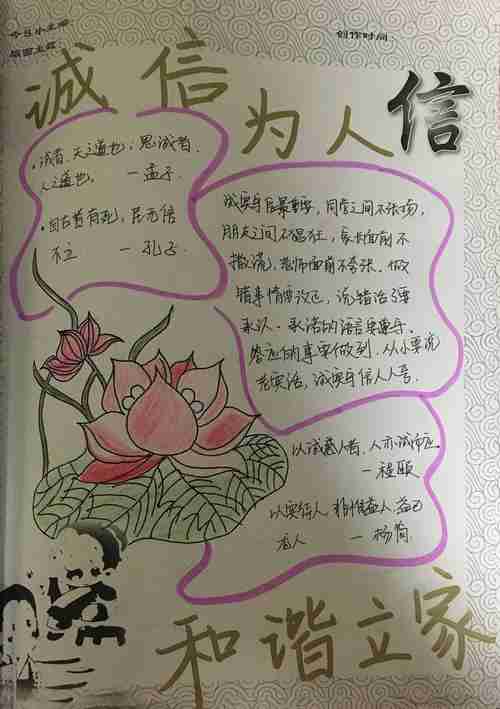 今日小主席:
版面主题:
创作时间:
诚信
为人
信
·诚者,天之道也;思诚者,
人之道也。 —孟子
·自古皆有死,民无信
不立 —孔子
诚实守信最重要,同学之间不张扬,
朋友之间不猖狂,家长面前不
撒谎,老师面前不夸张。做
错事情要改正,说错话了要
承认。承诺的语言要遵守,
答应的事要做到。从小要说
老实话,诚实守信人人夸。
以诚感人者,人亦诚而应。
—程颐
以实待人,非惟益人,益己
尤大 —杨简
和谐立家